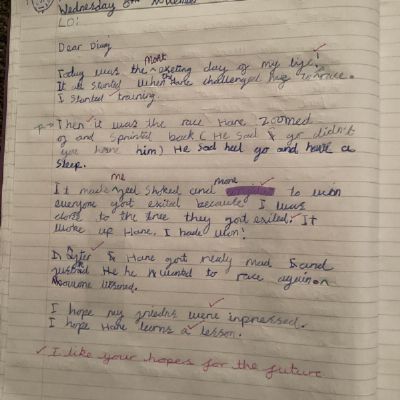 Wednesday 8th November
LO:
Dear Diary
Today was the most exeting day of my life!
It all started when the Hare challenged hug to race.
I started training.
Then it was the race Hare zoomed
of and sprinted back (He sad & go didn't
you have him) He sad heel go and have a
sleep.
It made me feel shoked and more to won
everyone got exited because I was
close to the tree they got exiled. It
woke up Hare. I hade won!
After Hare got realy mad and
said He he wanted to race again
I hope my freinds were inpressed.
I hope Hare lerns a lesson.
I like your hopes for the future